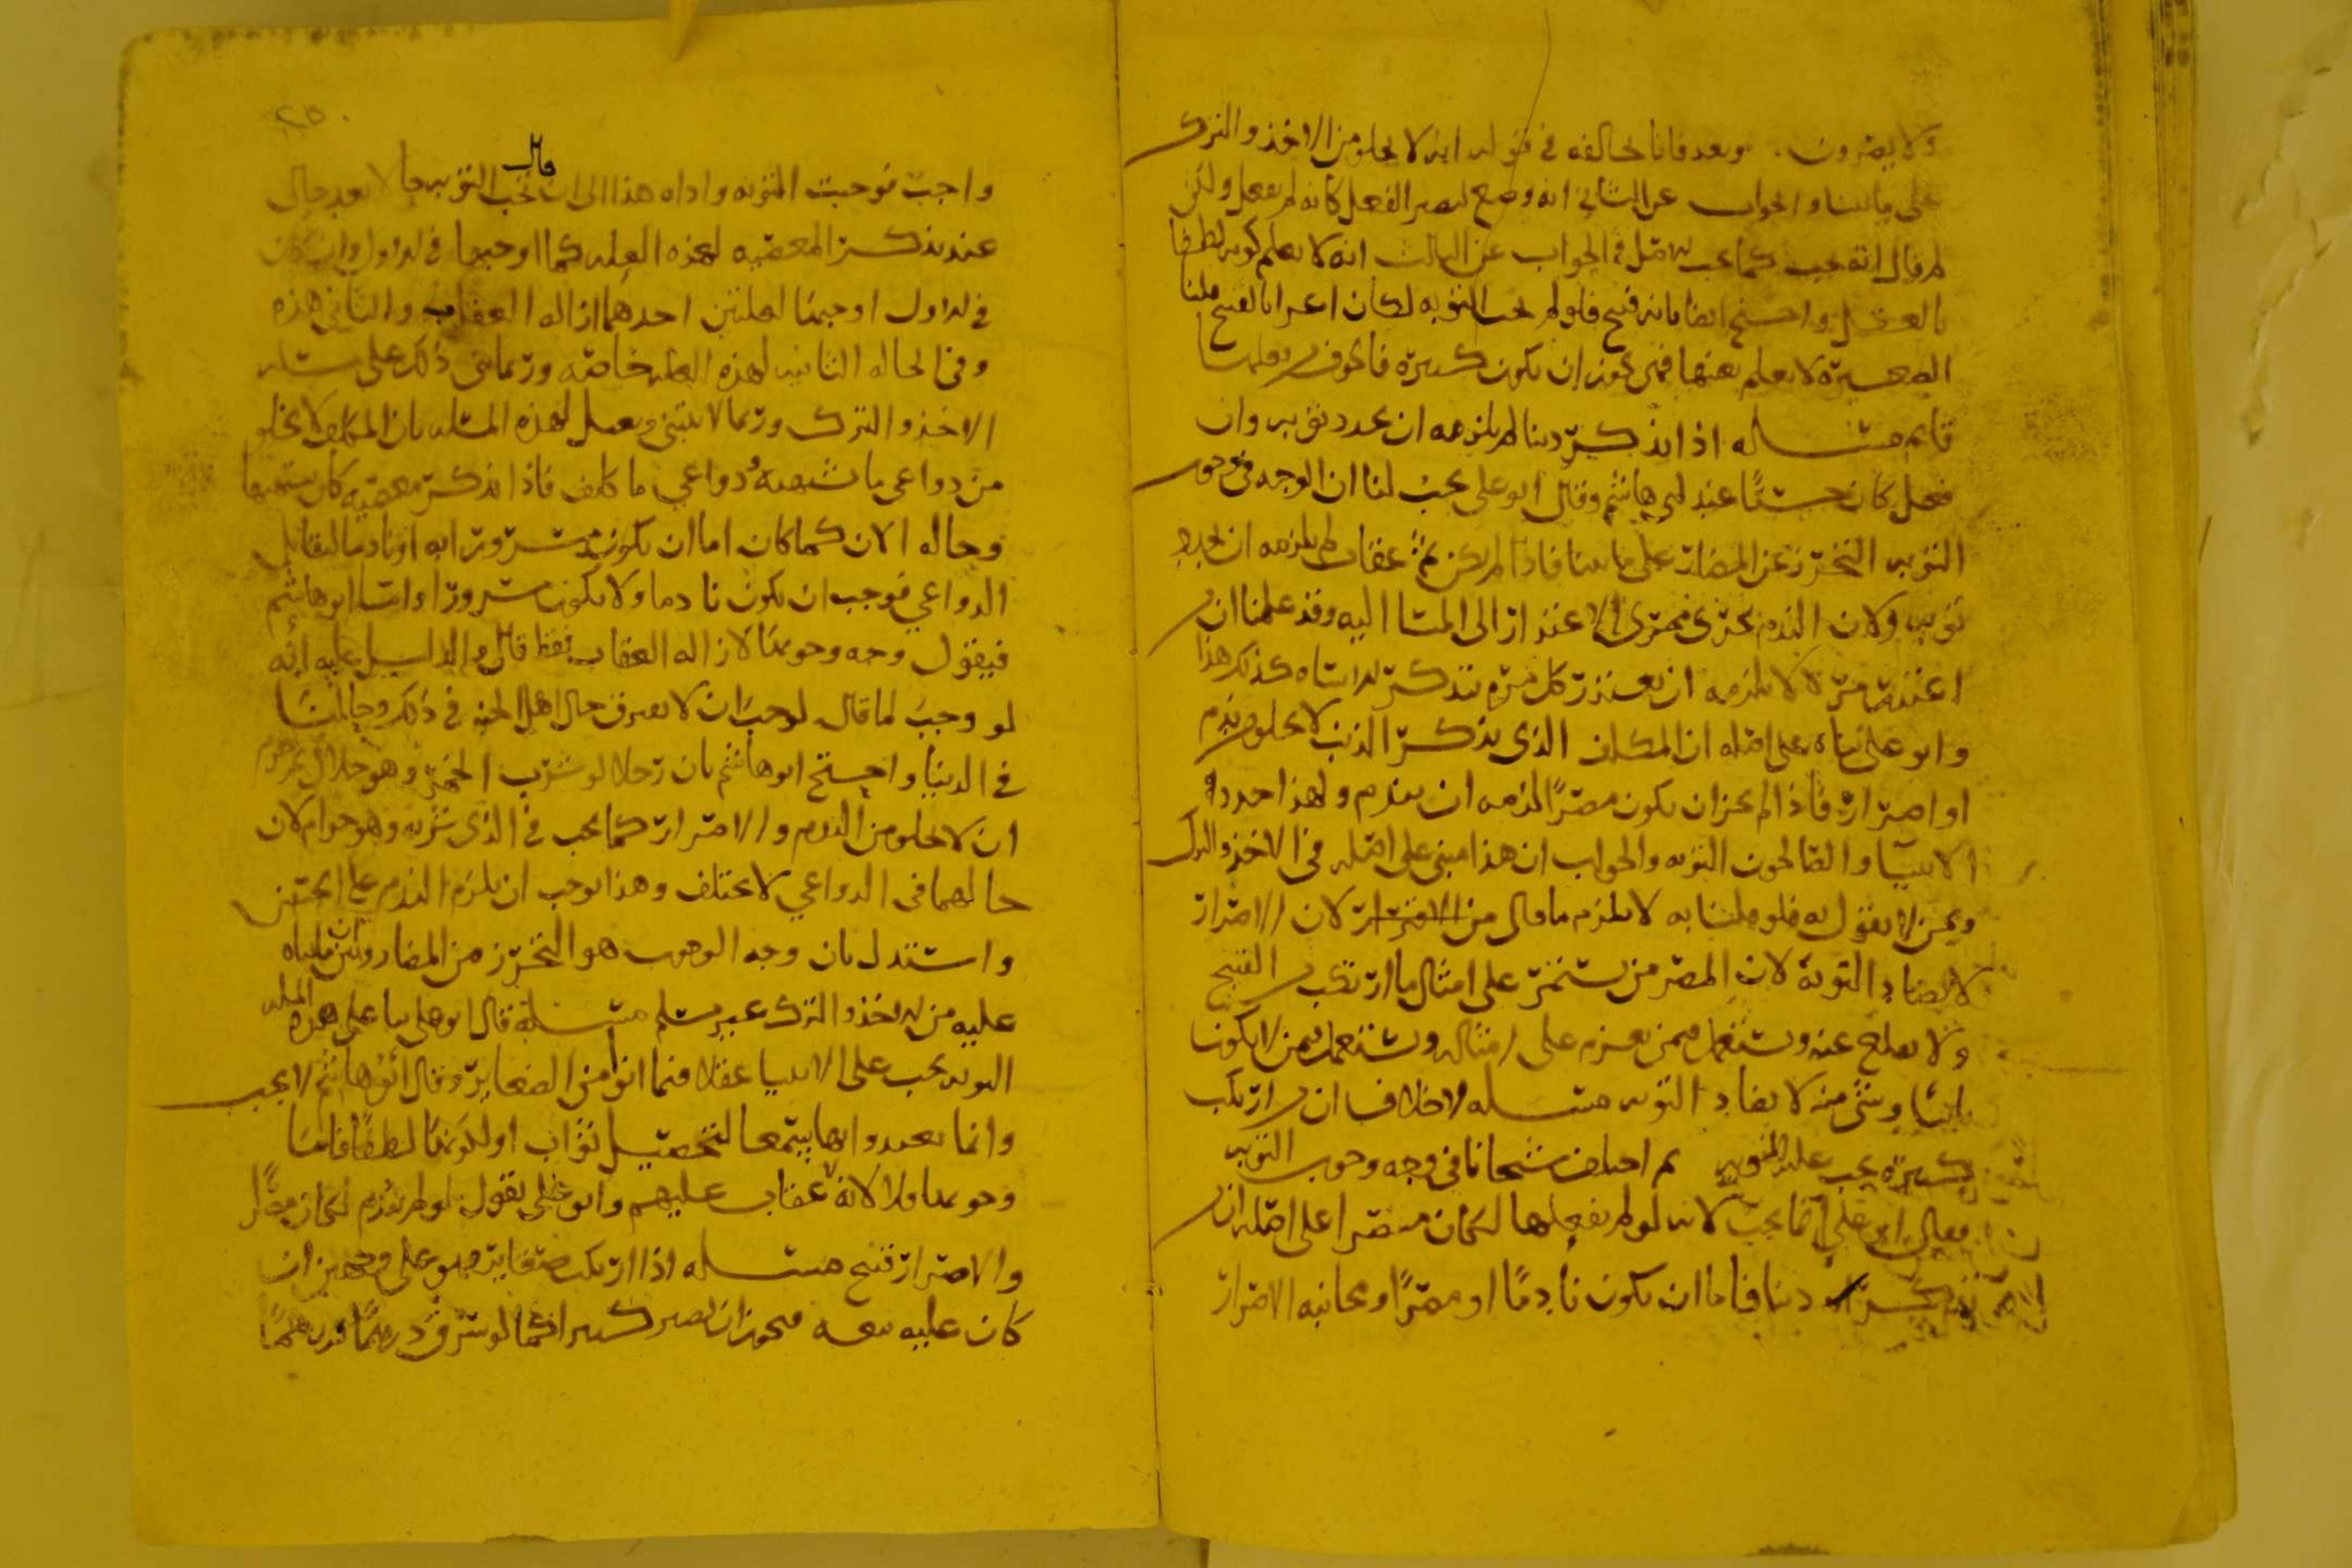 ولا يصرون. وبعد فانا نخالفه في قوله انه لا يخلو من الاخذ والترك
على ما بينا والجواب عن الثاني انه وضع ليصير الفعل كانه لم يفعل ولكن
لم قال انه يجب كما يجب قيل في الجواب عن الثالث انه لا يعلم كونه لطفا
بالعقل واحتج ايضا بانه قبيح فلو لم تجب التوبة لكان اغرا بالقبيح قلنا
الصغيرة لا يعلم بعينها فمن يجوز ان يكون كبيرة فالخوف
قايم مسئله اذا تذكر ذنبا لم يلزمه ان يجدد توبه وان
فعل كان حسنا عند ابي هاشم وقال ابو علي يجب لنا ان الوجه في وجوب
التوبه التحرز عن المضار على ما بينا فاذا لم يكن ثم عقاب لم يلزمه ان يجدد
توبه ولان الندم يجري مجرى الاعتذار الى المسا اليه وقد علمنا ان من
اعتذر مرة لا يلزمه ان يعتذر كل مرة تذكر الاساه كذلك هذا
وابو علي بناه على اصله ان المكلف الذي تذكر الذنب لا يخلو من ندم
او اصرار فاذا لم يجز ان يكون مصرا لزمه ان يندم ولهذا جدد
الانبيا والصالحون التوبه والجواب ان هذا مبني على اصله في الاخذ والترك
ونحن لا نقول به فلو قلنا به لا يلزم ما قال من الاصرار لان الاصرار
لا يضاد التوبة لان المصر من يستمر على امثال ما ارتكب من القبيح
ولا يقلع عنه ويستعمل فيمن يعزم على امثاله ويستعمل فيمن لا يكون
تايبا وشي منه لا يضاد التوبه مسئله لا خلاف ان من ارتكب
كبيرة يجب عليه التوبه ثم اختلف شيخانا في وجه وجوب التوبه
فقال ابو علي انما يجب لانه لو لم يفعلها لكان مصرا على اصله ان
ذنبا فاما ان يكون نادما او مصرا ومجانبة الاصرار
٢٥
واجب فوجبت التوبه واداه هذا الى ان قال تجب التوبه حالا بعد حال
عند تذكر المعصيه لهذه العله كما اوجبها في الاول وان كان
في الاول اوجبها لعلتين احدهما ازاله العقاب والثاني هذه
وفي الحاله الثانيه لهذه العله خاصه وربما بنى ذلك على مسئله
الاخذ والترك وربما لا يبتني ويعلل لهذه المسئله بان المكلف لا يخلو
من دواعي ما شهية ودواعي ما كلف فاذا تذكر معصيه كان
وحاله الان كما كان اما ان يكون مسرورا به او نادما لتقابل
الدواعي فوجب ان يكون نادما ولا يكون مسرورا واما ابو هاشم
فيقول وجه وجوبها لازاله العقاب فقط قال والدليل عليه انه
لو وجب لما قال لوجب ان لا يفرق حال اهل الجنه في ذلك وحالنا
في الدنيا واحتج ابو هاشم بان رجلا لو شرب الخمر وهو حلال ثم حرم
ان لا يخلو من الندم والاصرار كما يجب في الذي شربه وهو حرام لان
حالهما في الدواعي لا يختلف وهذا يوجب ان يلزم الندم على الحسن
واستدل بان وجه الوجوب هو التحرز من المضار وان ما بناه
عليه من الاخذ والترك غير مسلم مسئله قال ابو علي بنا على هذه العله
التوبه يجب على الانبيا عقلا فيما اتوا من الصغاير وقال ابو هاشم لا يجب
وانما تعبدوا بها سمعا لتحصيل ثواب او لكونها لطفا فاما
وجوبها فلا لانه لا عقاب عليهم وابو علي يقول لو لم يندم لكان مصرا
والاصرار قبيح مسئله اذا ارتكب صغايره فهو على وجهين ان
كان عليه تبعه فيجوز ان يصير كبيرا كما لو سرق درهما فدرهما